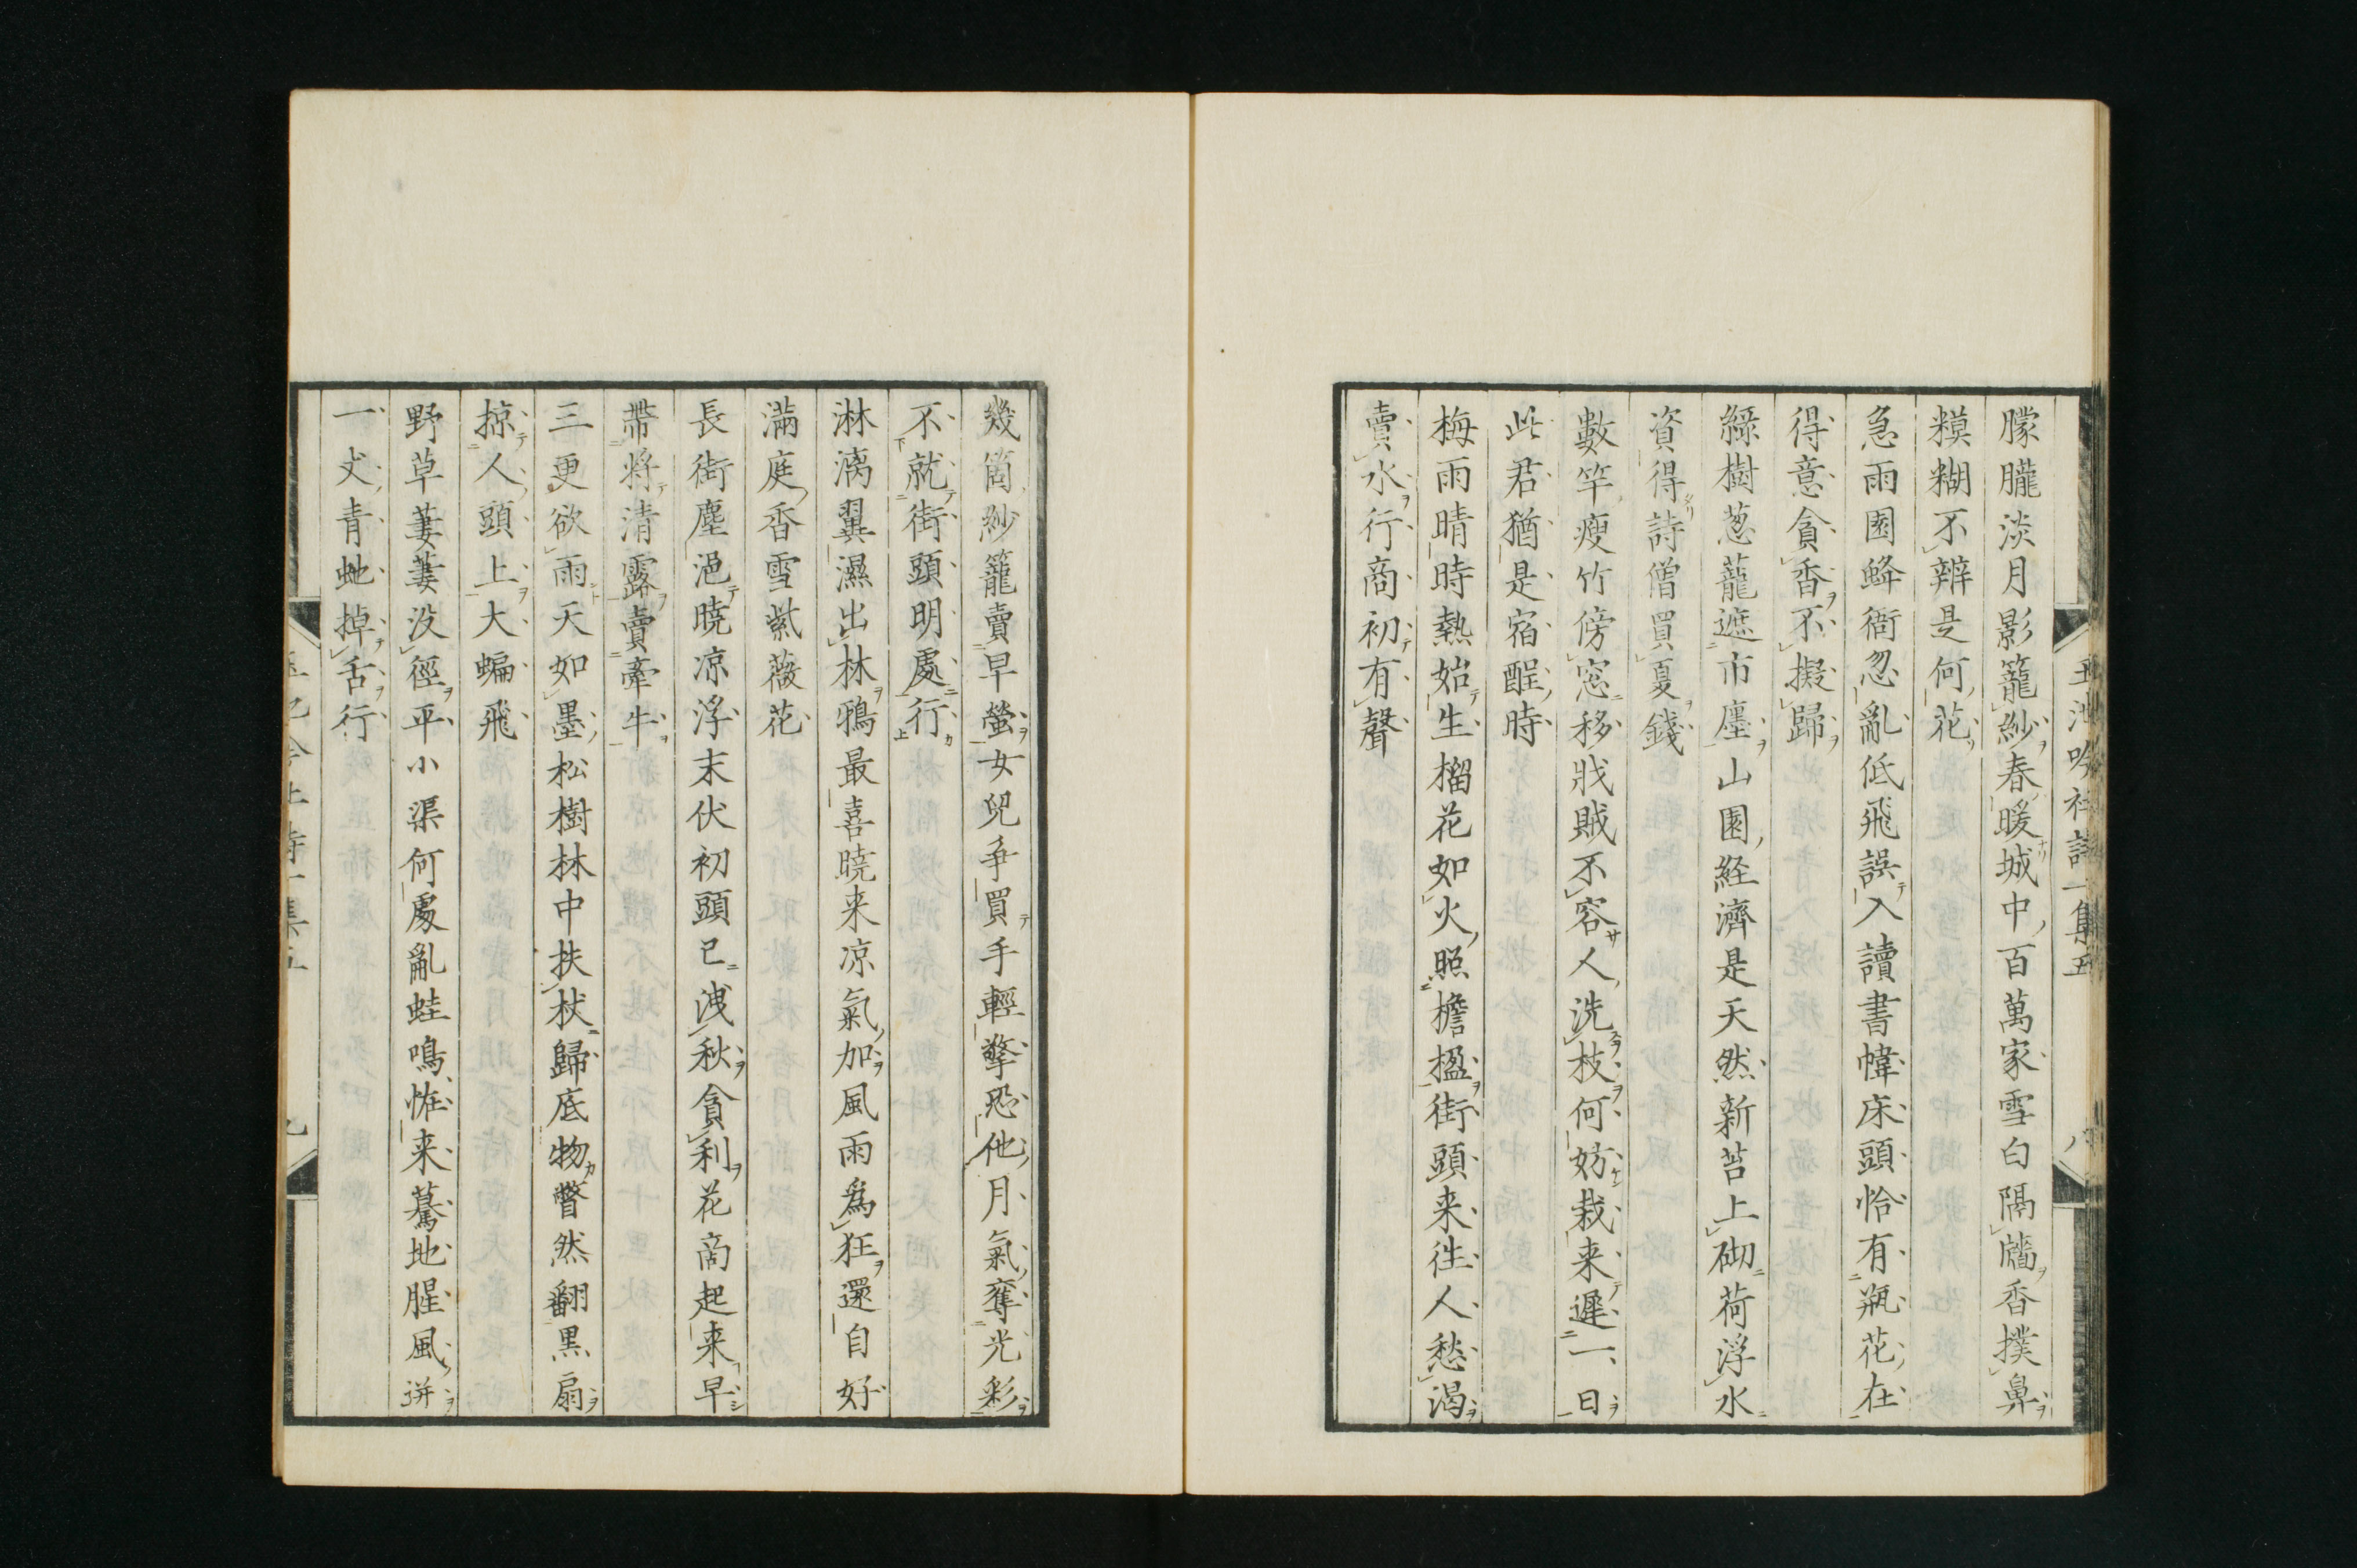 玉池吟社詩一集五
八
朦朧淡月影籠紗春暖城中百萬家雪白隔牆香撲鼻
糢糊不辨是何花
急雨園蜂衙忽亂低飛誤入讀書幃床頭恰有瓶花在
得意貪香不擬歸
緑樹葱蘢遮市廛山園経濟是天然新苔上砌荷浮水
資得詩僧買夏錢
數竿瘦竹傍窓移戕賊不容人洗枝何妨栽来遲一日
此君猶是宿酲時
梅雨晴時熱始生榴花如火照檐楹街頭来徃人愁渇
賣水行商初有聲
幾箇紗籠賣早螢女兒争買手輕擎恐他月氣奪光彩
不就街頭明處行
淋漓翼濕出林鴉最喜暁来凉氣加風雨為狂還自好
滿庭香雪紫薇花
長街塵浥暁凉浮末伏初頭已洩秋貪利花商起来早
帶将清露賣牽牛
三更欲雨天如墨松樹林中扶杖歸底物瞥然翻黒扇
掠人頭上大蝙飛
野草萋萋没徑平小渠何處亂蛙鳴惟来驀地腥風迸
一丈青虵掉舌行